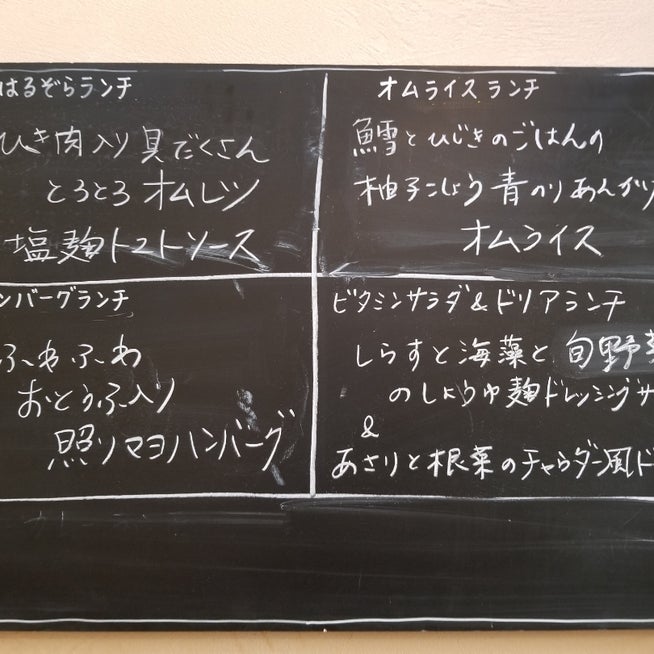 はるぞらランチ
ひき肉入り具だくさん
とろとろオムレツ
塩麹トマトソース
オムライスランチ
鱈とひじきのごはんの
柚子こしょう青のりあんかけ
オムライス
ンバーグランチ
ふわふわ
おとうふ入り
照りマヨハンバーグ
ビタミンサラダ&ドリアランチ
しらすと海藻と旬野菜
のしょうゆ麹ドレッシングサ
&
あさりと根菜のチャウダー風ド